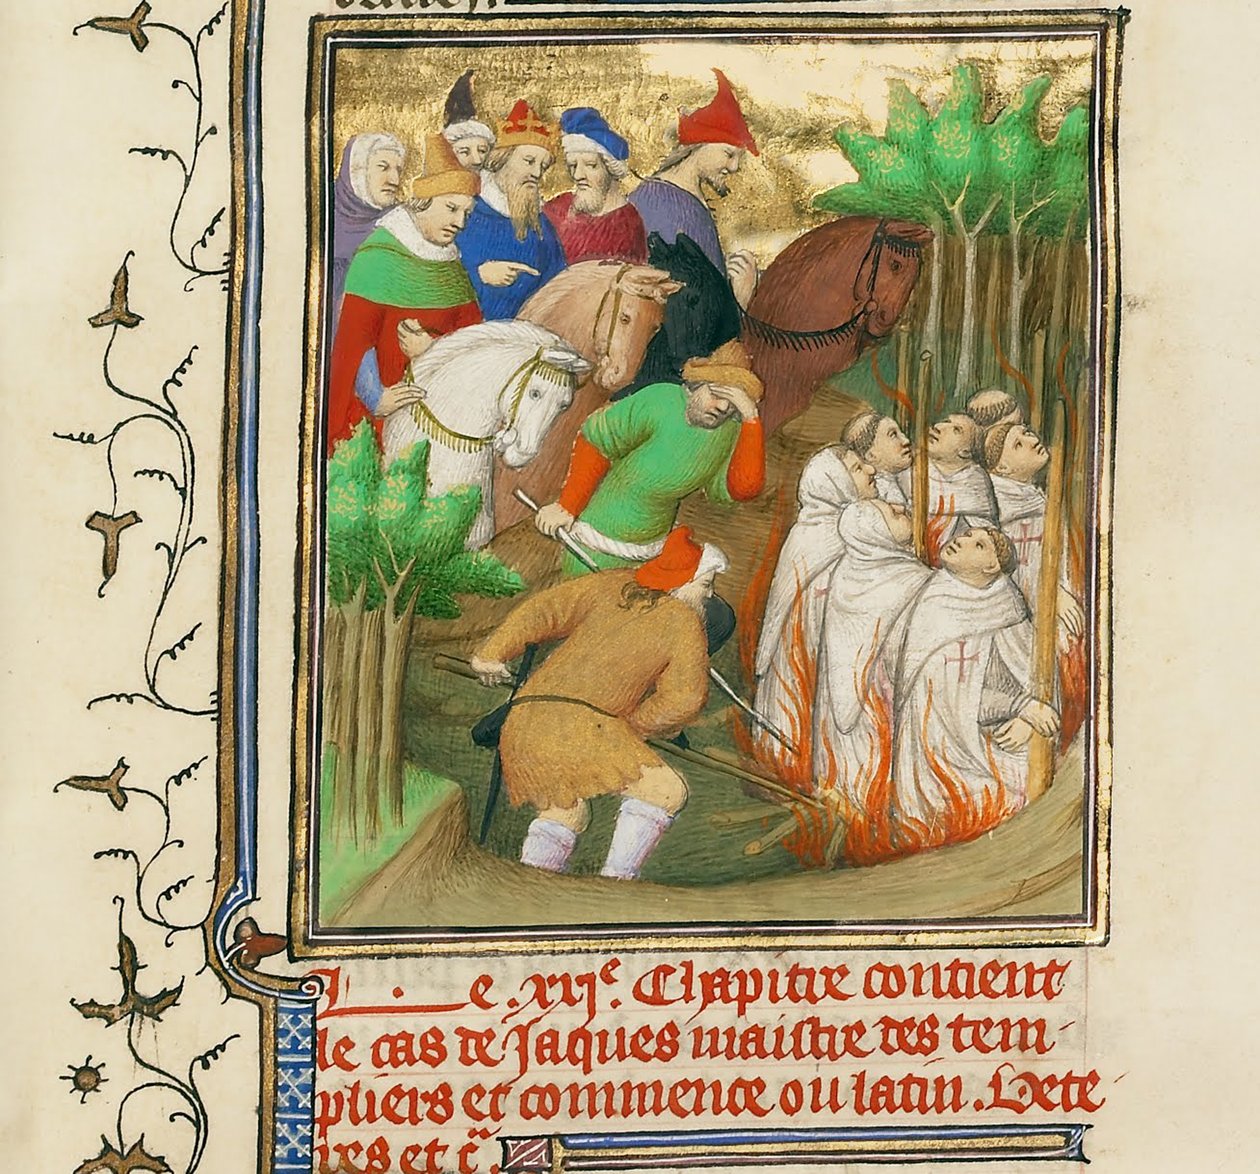 Le .xxje. Chapitre contient
le cas de Jaques maistre des tem-
pliers et commence ou latin. Vete
res et c̃.